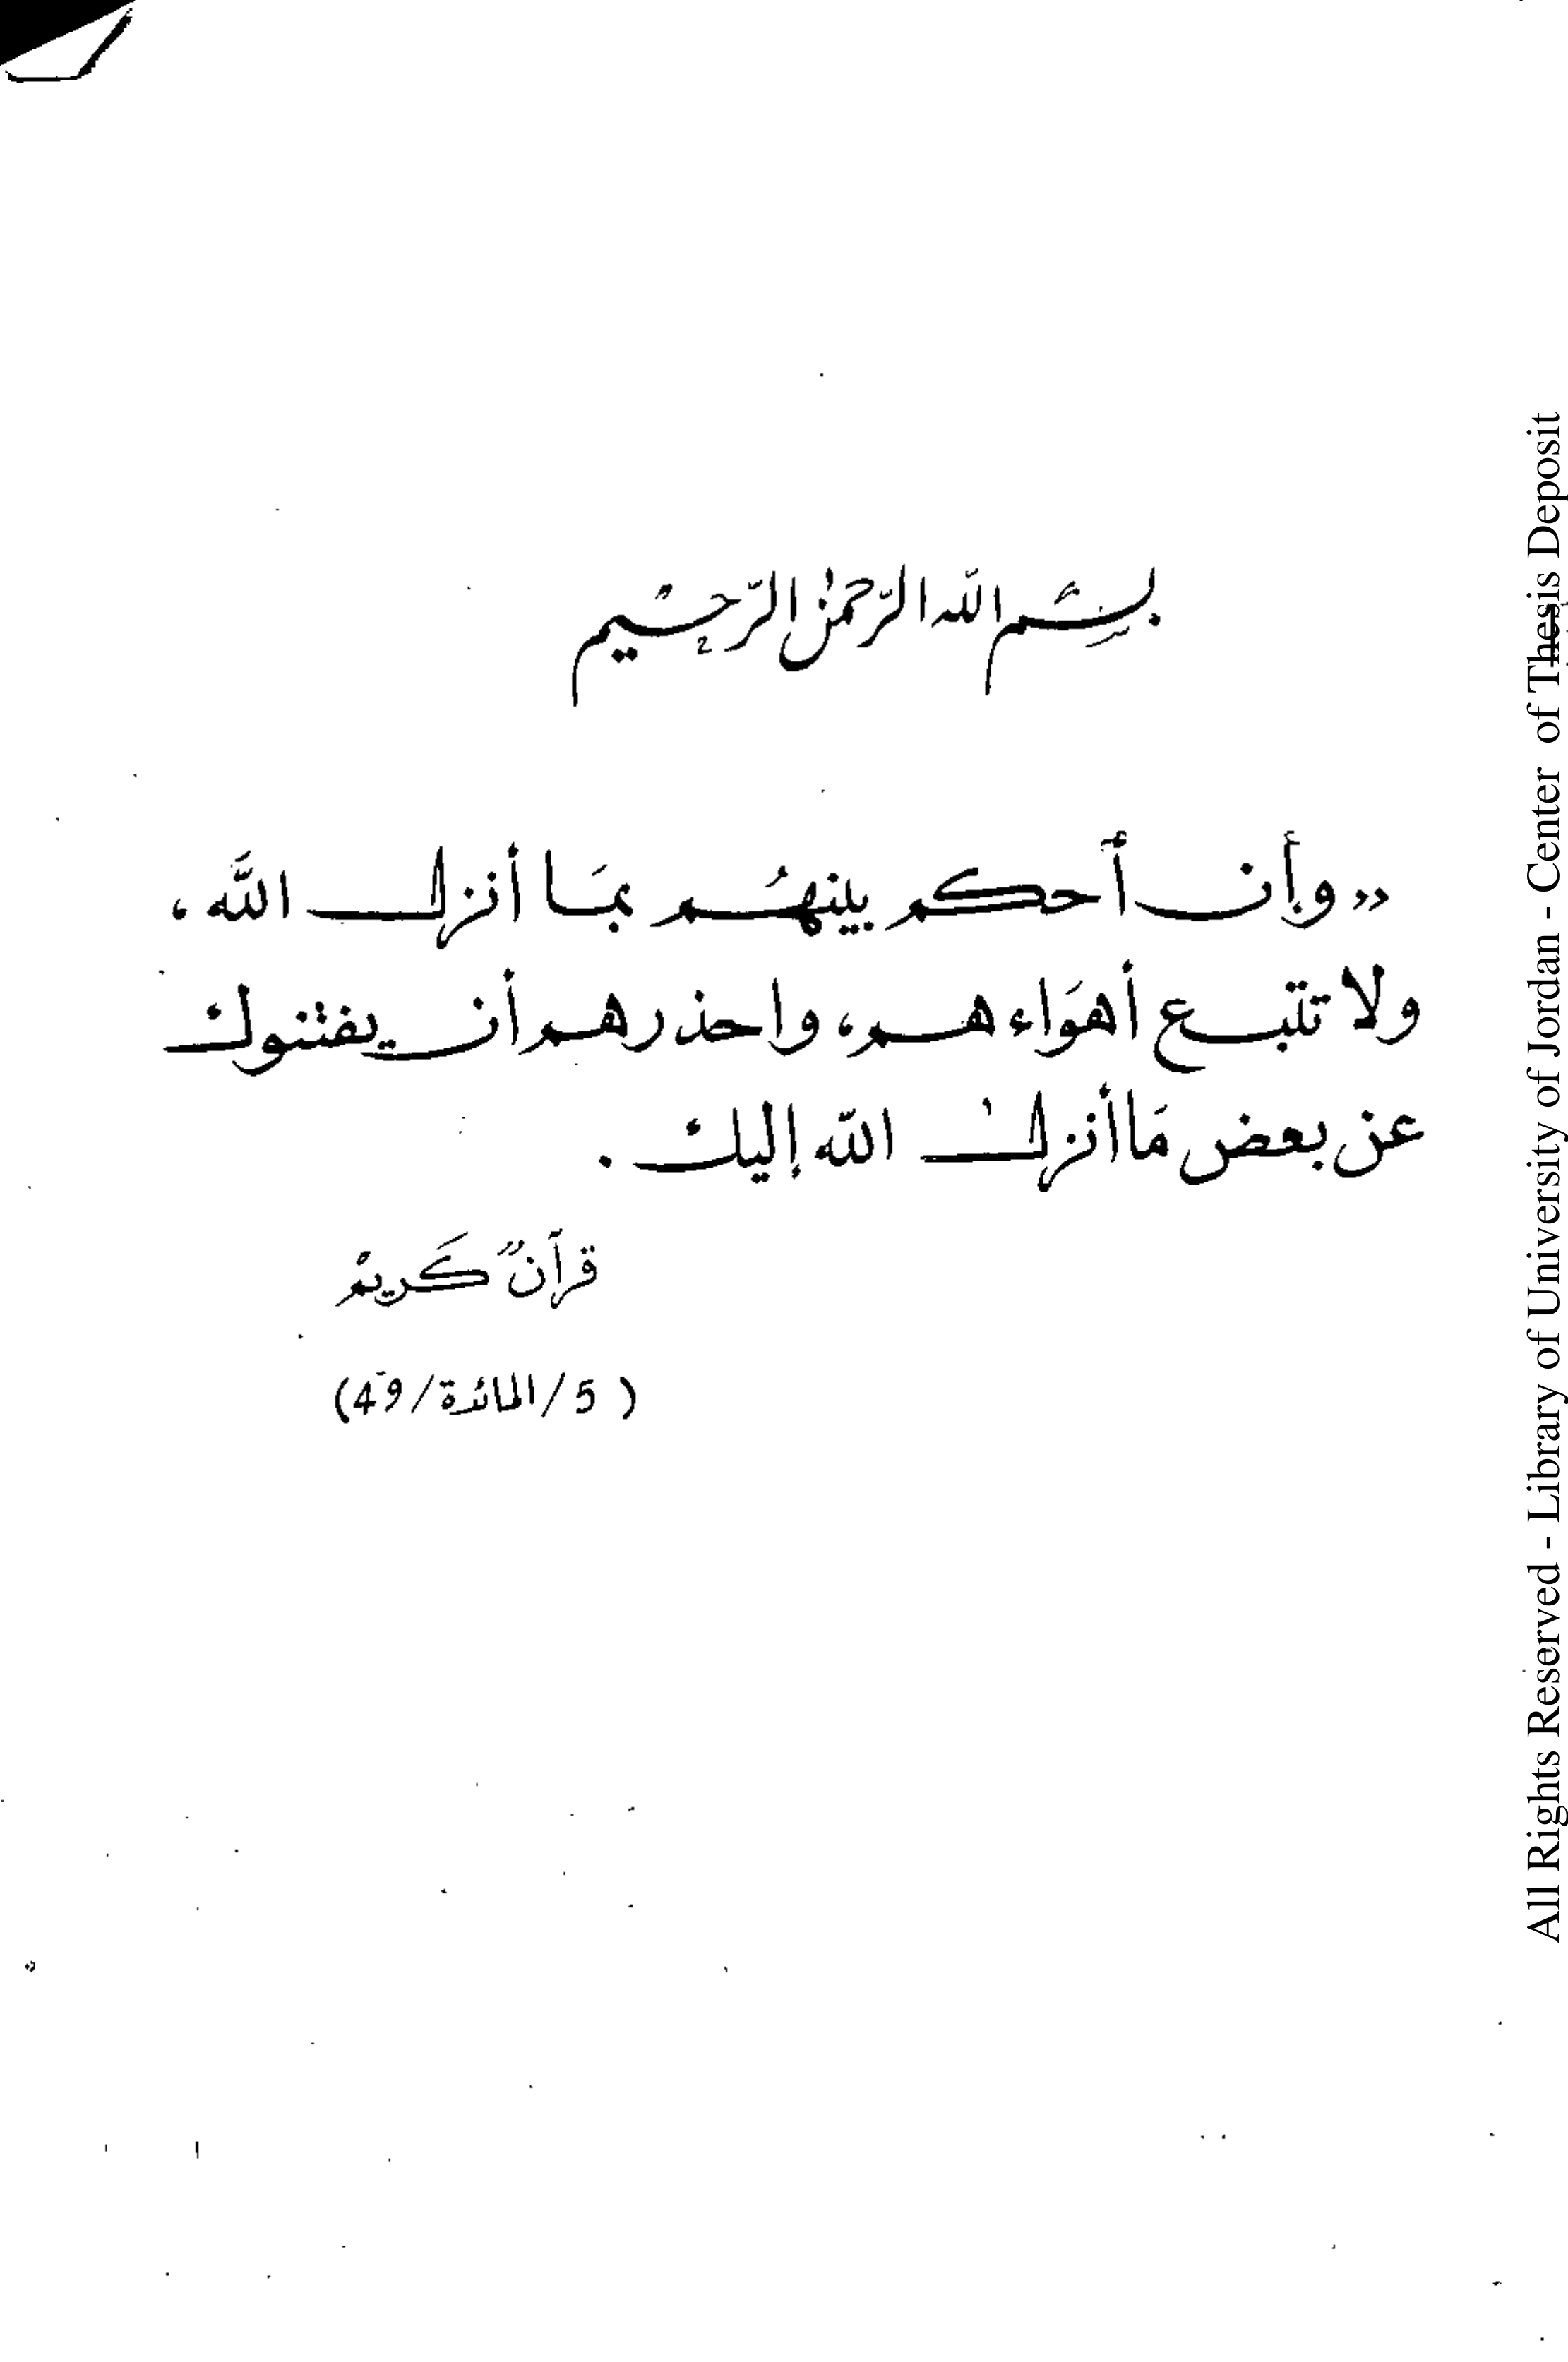 بِسْمِ اللّٰه الرّحمٰن الرّحيم
«وأن أحكم بينهُم بمَا أنزل اللَّه،
ولا تتّبع أهوَاءهم، واحذرهم أن يفتنوك
عن بعض مَا أنزل اللّه إليك.
قرآنٌ كَريمْ
(5/المائدة/49)
All Rights Reserved - Library of University of Jordan - Center of Thesis Deposit